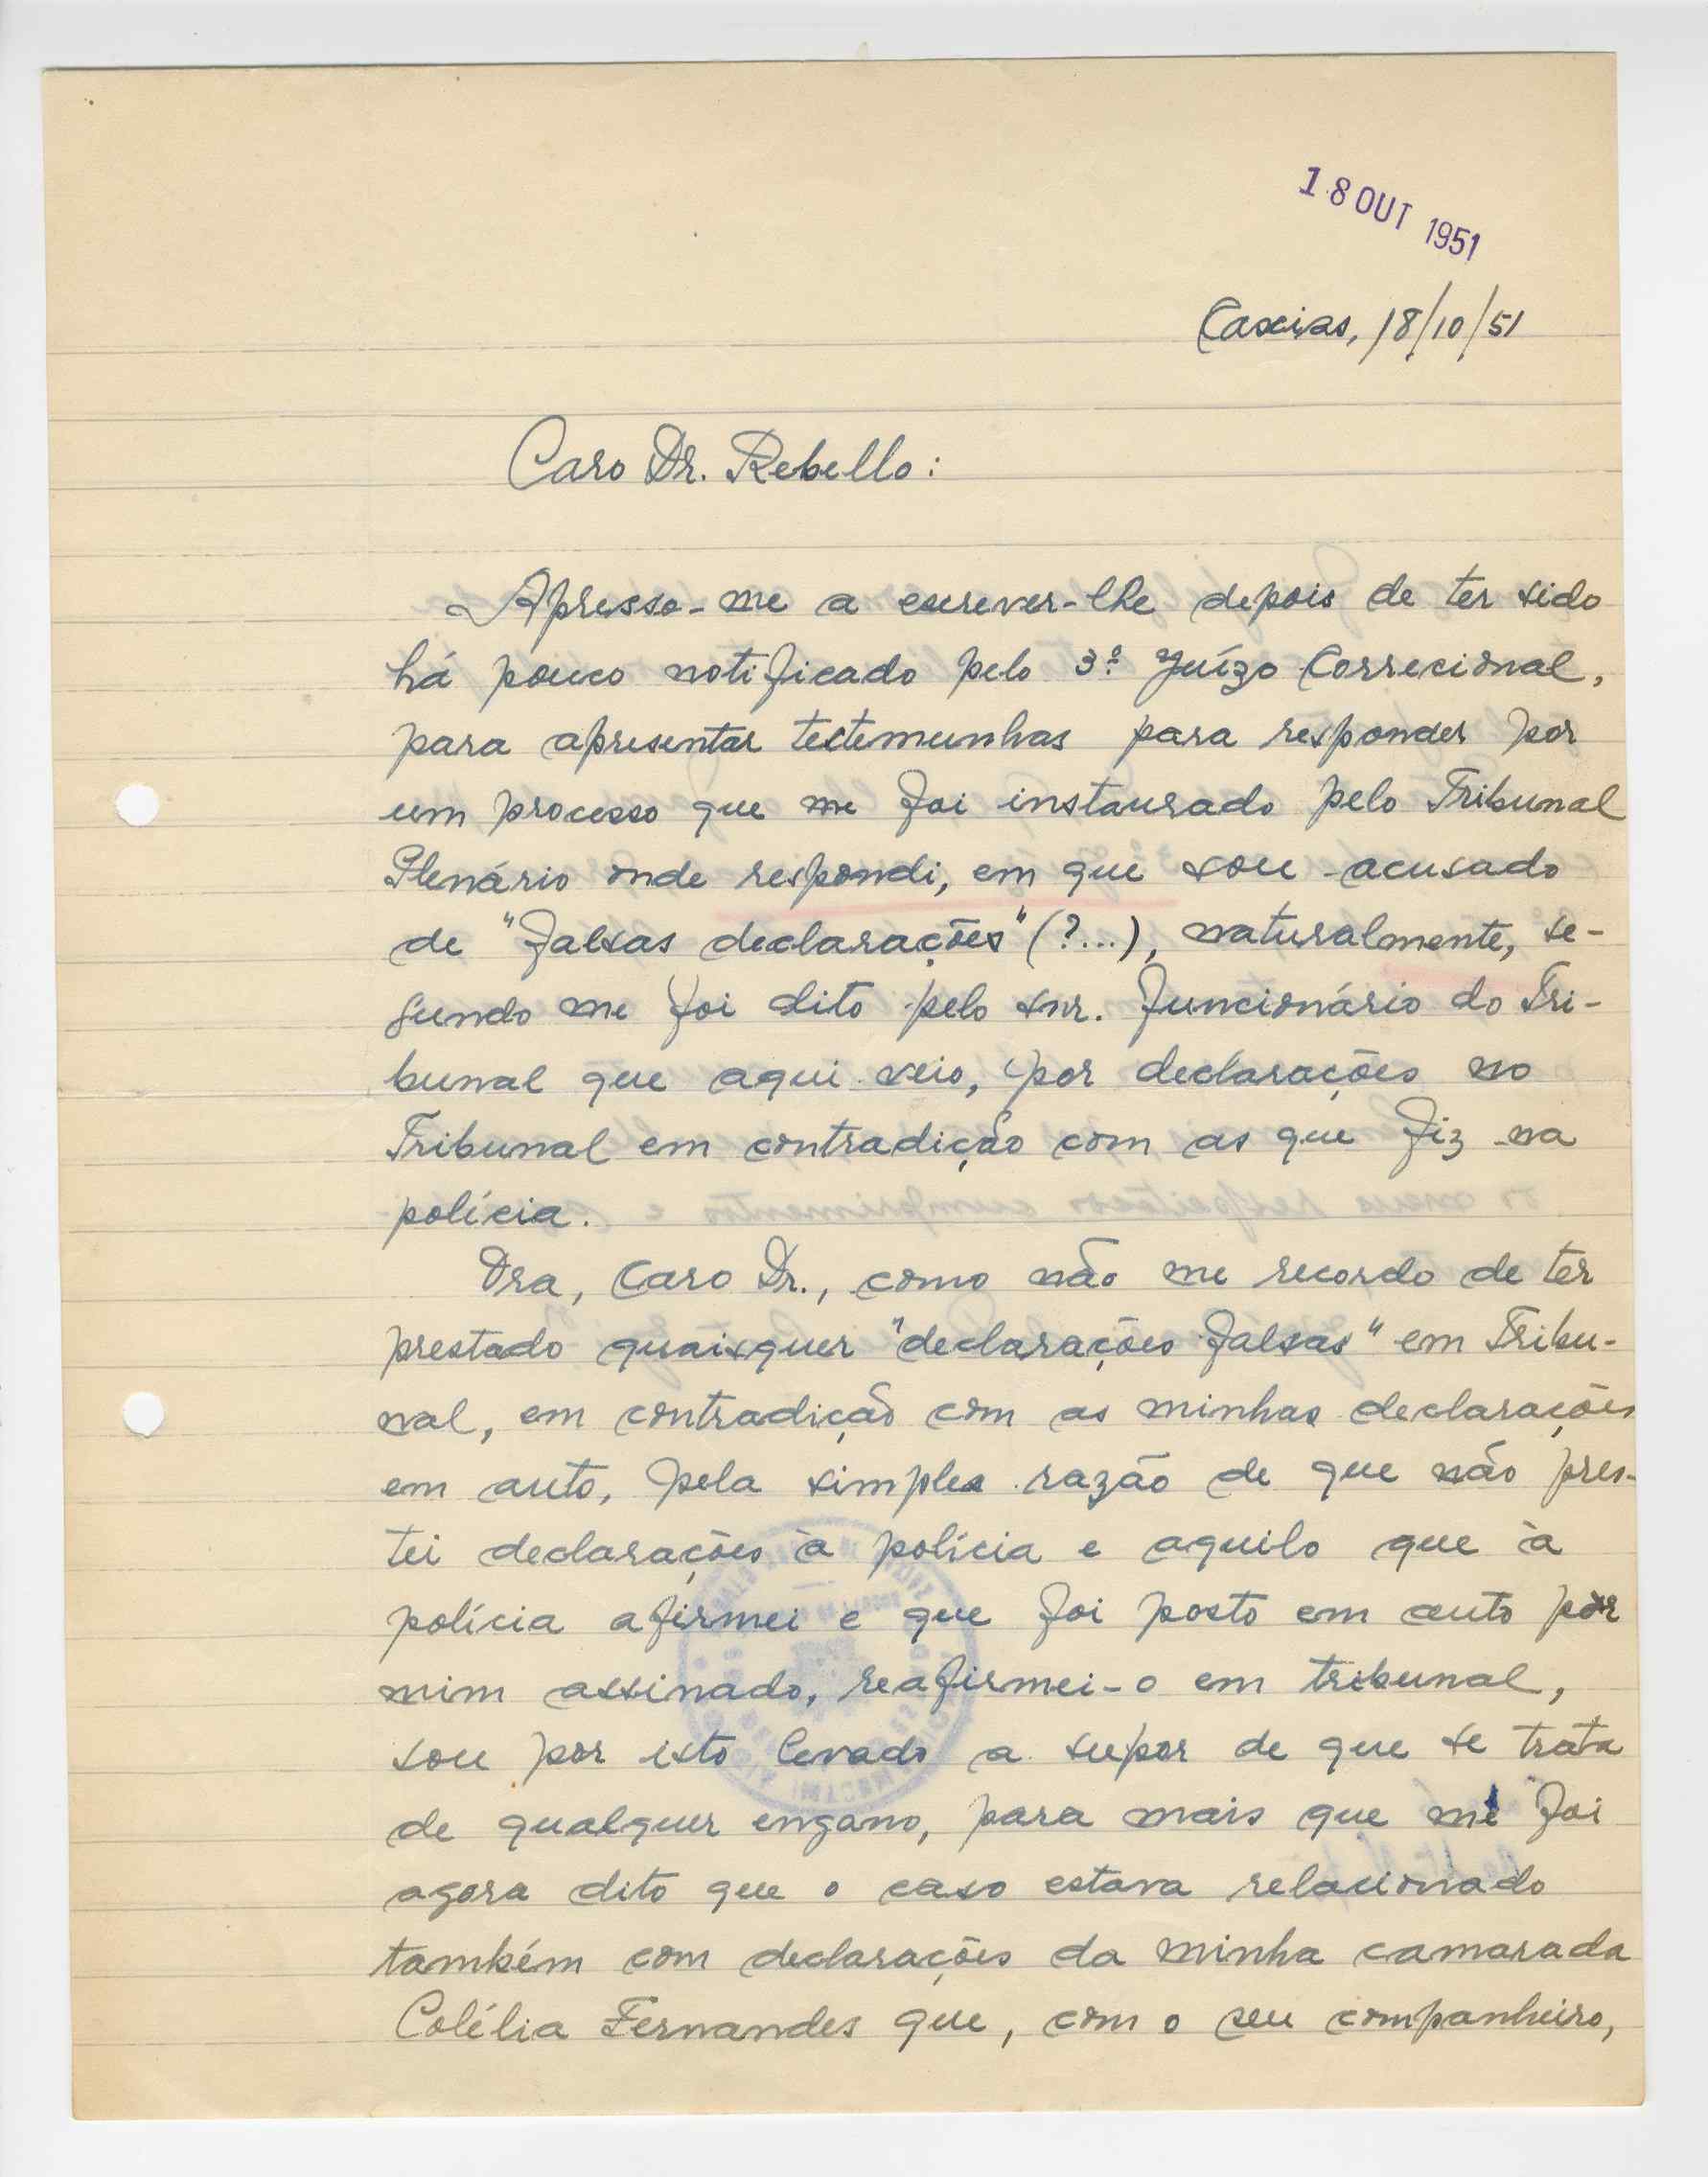 18 OUT 1951
Caxias, 18/10/51
Caro Dr. Rebello:
Apresso-me a escrever-lhe depois de ter sido
há pouco notificado pelo 3º Juízo Correcional,
para apresentar testemunhas para responder por
um processo que me foi instaurado pelo Tribunal
Plenário onde respondi, em que sou acusado
de "falsas declarações" (?...), naturalmente, se-
gundo me foi dito pelo snr. funcionário do Tri-
bunal que aqui veio, por declarações no
Tribunal em contradição com as que fiz na
polícia.
Ora, Caro Dr., como não me recordo de ter
prestado quaisquer "declarações falsas" em Tribu-
nal, em contradição com as minhas declarações
em auto, pela simples razão de que não pres-
tei declarações à polícia e aquilo que à
polícia afirmei e que foi posto em auto por
mim assinado, reafirmei-o em tribunal,
sou por isto levado a supor de que se trata
de qualquer engano, para mais que me foi
agora dito que o caso estava relacionado
também com declarações da minha camarada
Colélia Fernandes que, com o seu companheiro,